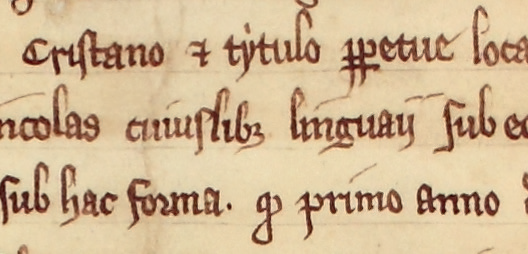 Cristano ⁊ tytulo ꝑꝑetue loca
incolas cuiuslibꝫ linguaꝝ sub e
sub hac forma. ꝙ primo anno